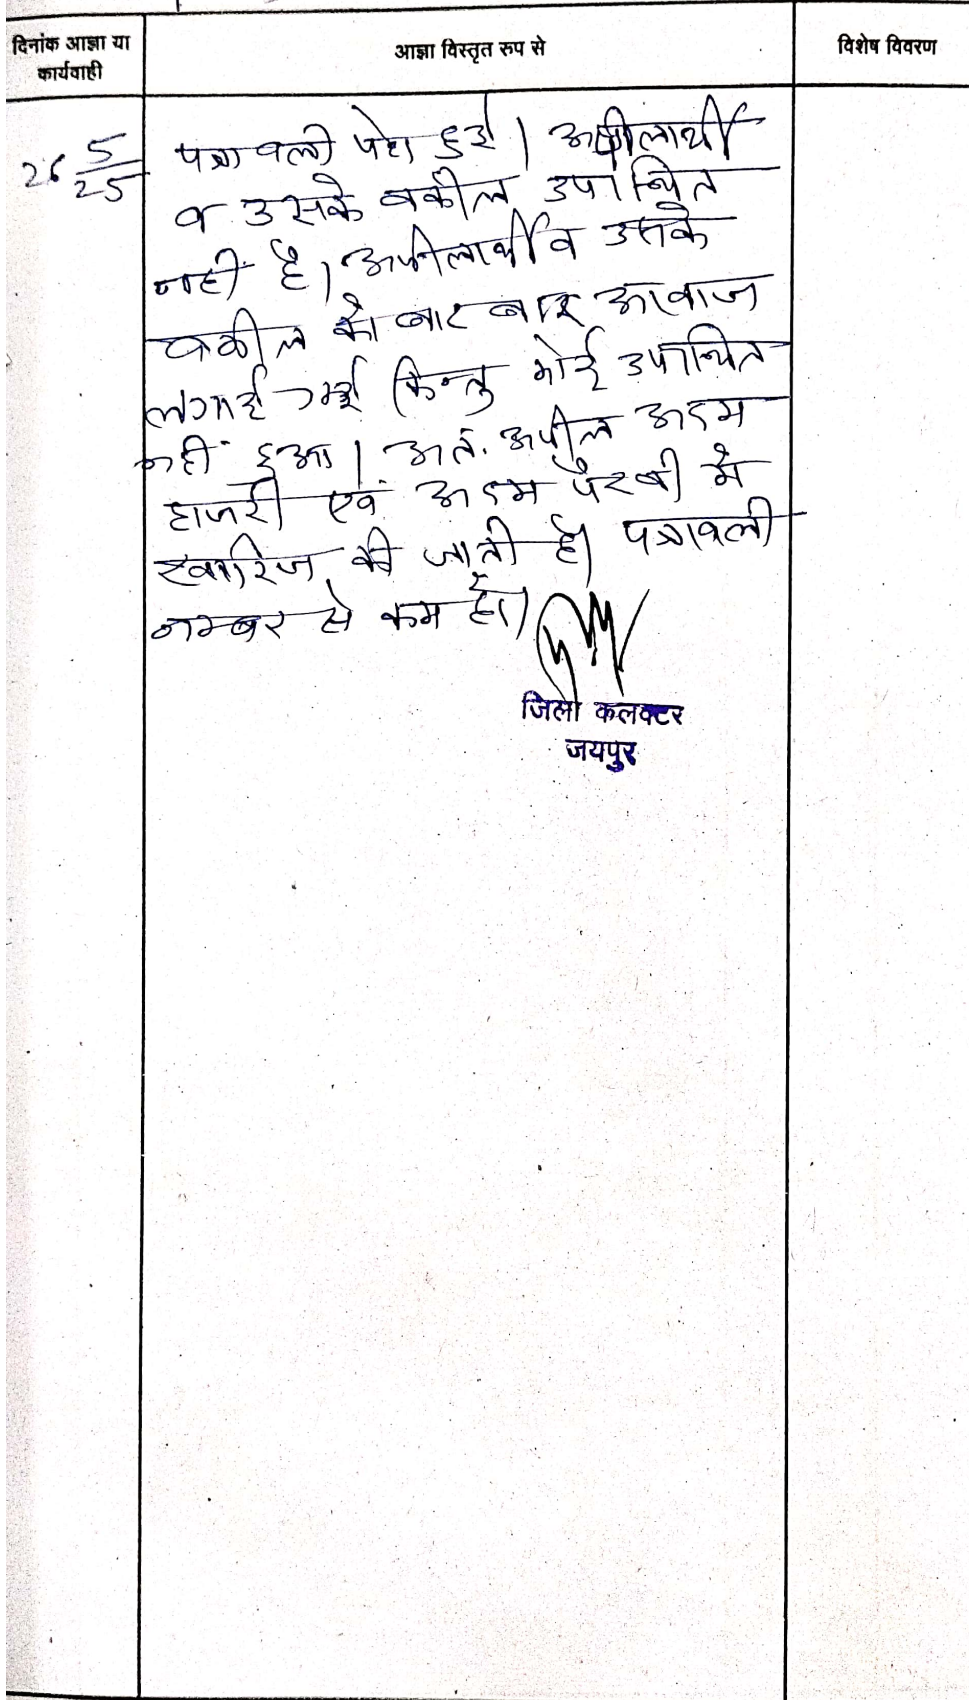 दिनांक आज्ञा या
कार्यवाही
आज्ञा विस्तृत रुप से
विशेष विवरण
26 5/25
पत्रावली पेश हुई। अपीलार्थी
व उसके वकील उपस्थित
नहीं है। अपीलार्थी व उसके
वकील को बार बार आवाज
लगाई गई किन्तु कोई उपस्थित
नहीं हुआ। अतः अपील अदम
हाजरी एवं अदम पैरवी में
खारिज की जाती है। पत्रावली
नम्बर से कम हो।
जिला कलक्टर
जयपुर